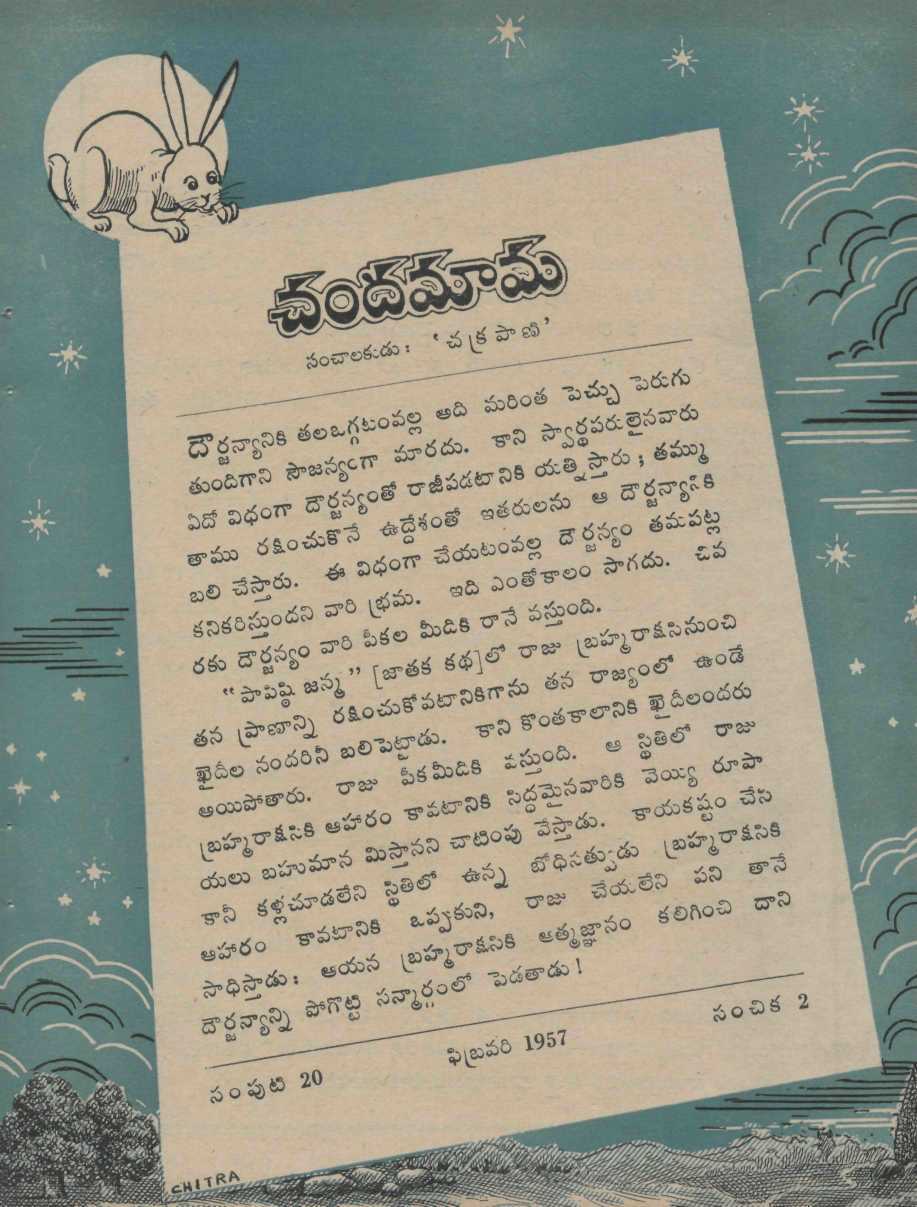 చందమామ
సంచాలకుడు : ‘చక్రపాణి’
దౌర్జన్యానికి తలఒగ్గటంవల్ల అది మరింత పెచ్చు పెరుగు
తుందిగాని సౌజన్యంగా మారదు. కాని స్వార్థపరులైనవారు
ఏదో విధంగా దౌర్జన్యంతో రాజీపడటానికి యత్నిస్తారు ; తమ్ము
తాము రక్షించుకొనే ఉద్దేశంతో ఇతరులను ఆ దౌర్జన్యానికి
బలి చేస్తారు. ఈ విధంగా చేయటంవల్ల దౌర్జన్యం తమపట్ల
కనికరిస్తుందని వారి భ్రమ. ఇది ఎంతోకాలం సాగదు. చివ
రకు దౌర్జన్యం వారి పీకల మీదికి రానే వస్తుంది.
“ పాపిష్ఠి జన్మ ” [జాతక కథ]లో రాజు బ్రహ్మరాక్షసినుంచి
తన ప్రాణాన్ని రక్షించుకోవటానికిగాను తన రాజ్యంలో ఉండే
ఖైదీల నందరినీ బలిపెట్టాడు. కాని కొంతకాలానికి ఖైదీలందరు
అయిపోతారు. రాజు పీకమీదికి వస్తుంది. ఆ స్థితిలో రాజు
బ్రహ్మరాక్షసికి ఆహారం కావటానికి సిద్ధమైనవారికి వెయ్యి రూపా
యలు బహుమాన మిస్తానని చాటింపు వేస్తాడు. కాయకష్టం చేసి
కానీ కళ్లచూడలేని స్థితిలో ఉన్న బోధిసత్వుడు బ్రహ్మరాక్షసికి
ఆహారం కావటానికి ఒప్పకుని, రాజు చేయలేని పని తానే
సాధిస్తాడు: ఆయన బ్రహ్మరాక్షసికి ఆత్మజ్ఞానం కలిగించి దాని
దౌర్జన్యాన్ని పోగొట్టి సన్మార్గంలో పెడతాడు!
సంపుటి 20 ఫిబ్రవరి 1957 సంచిక 2
CHITRA